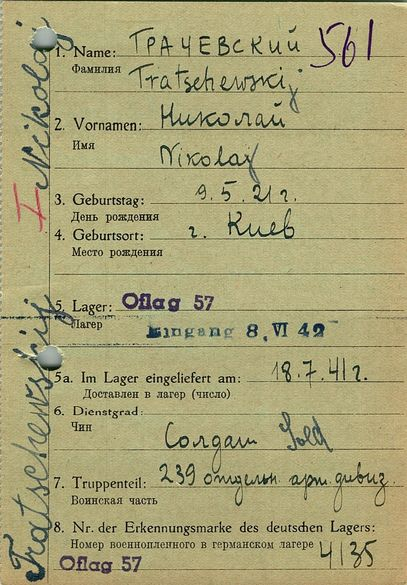 Tratschewskij Nikolaj
1. Name: ТРАЧЕВСКИЙ 561
Фамилия Tratschewskij
2. Vornamen: Николай
Имя
Nikolay
3. Geburtstag: 9. 5. 21 г.
День рождения
4. Geburtsort: г. Киев
Место рождения
5. Lager: Oflag 57
Лагерь
Eingang 8. VI 42
5a. Im Lager eingeliefert am: 18. 7. 41 г.
Доставлен в лагерь (число)
6. Dienstgrad:
Чин
Солдат Sold
7. Truppenteil: 239 отдельн. арт. дивиз.
Воинская часть
8. Nr. der Erkennungsmarke des deutschen Lagers:
Номер военнопленного в германском лагере 4135
Oflag 57